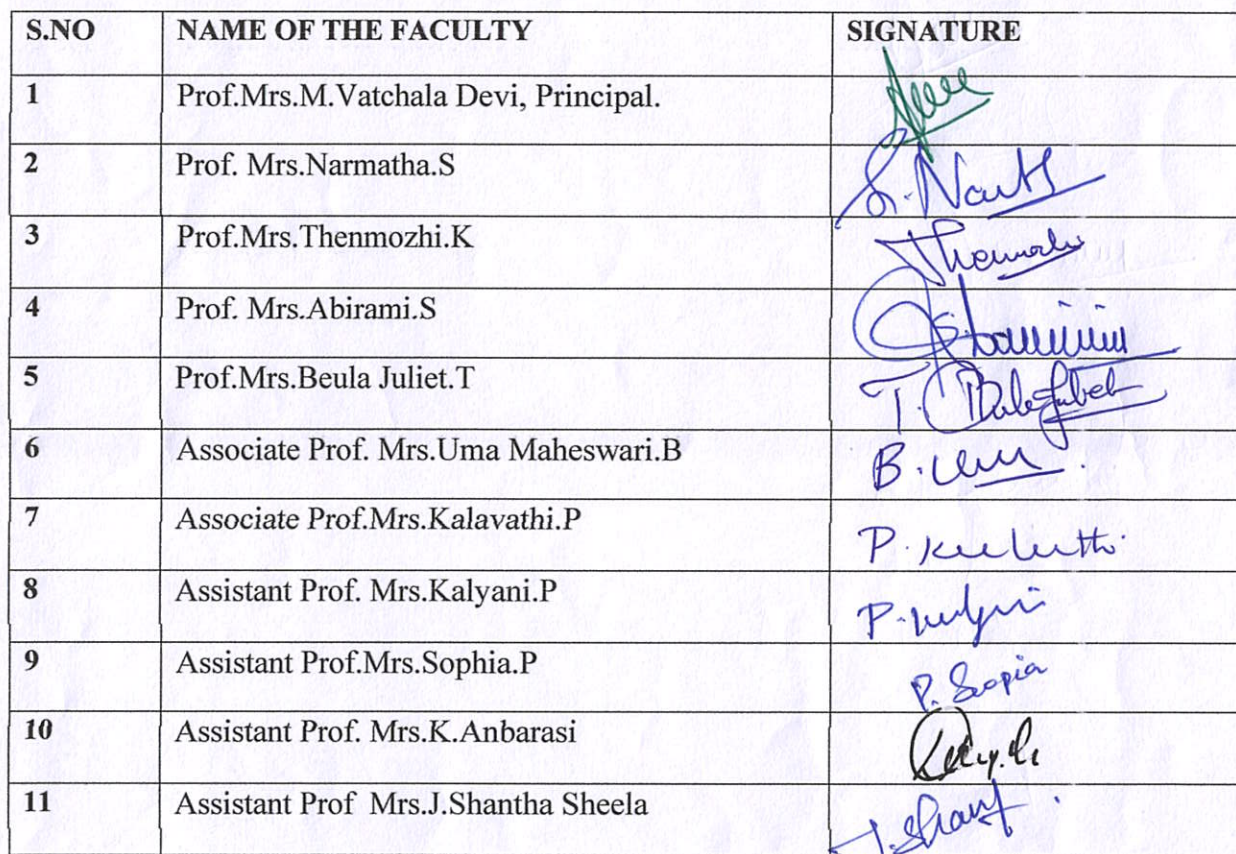 S.NO NAME OF THE FACULTY SIGNATURE
1 Prof.Mrs.M.Vatchala Devi, Principal.
2 Prof. Mrs.Narmatha.S
3 Prof.Mrs.Thenmozhi.K
4 Prof. Mrs.Abirami.S
5 Prof.Mrs.Beula Juliet.T
6 Associate Prof. Mrs.Uma Maheswari.B B.
7 Associate Prof.Mrs.Kalavathi.P P.
8 Assistant Prof. Mrs.Kalyani.P P.
9 Assistant Prof.Mrs.Sophia.P P.
10 Assistant Prof. Mrs.K.Anbarasi
11 Assistant Prof Mrs.J.Shantha Sheela